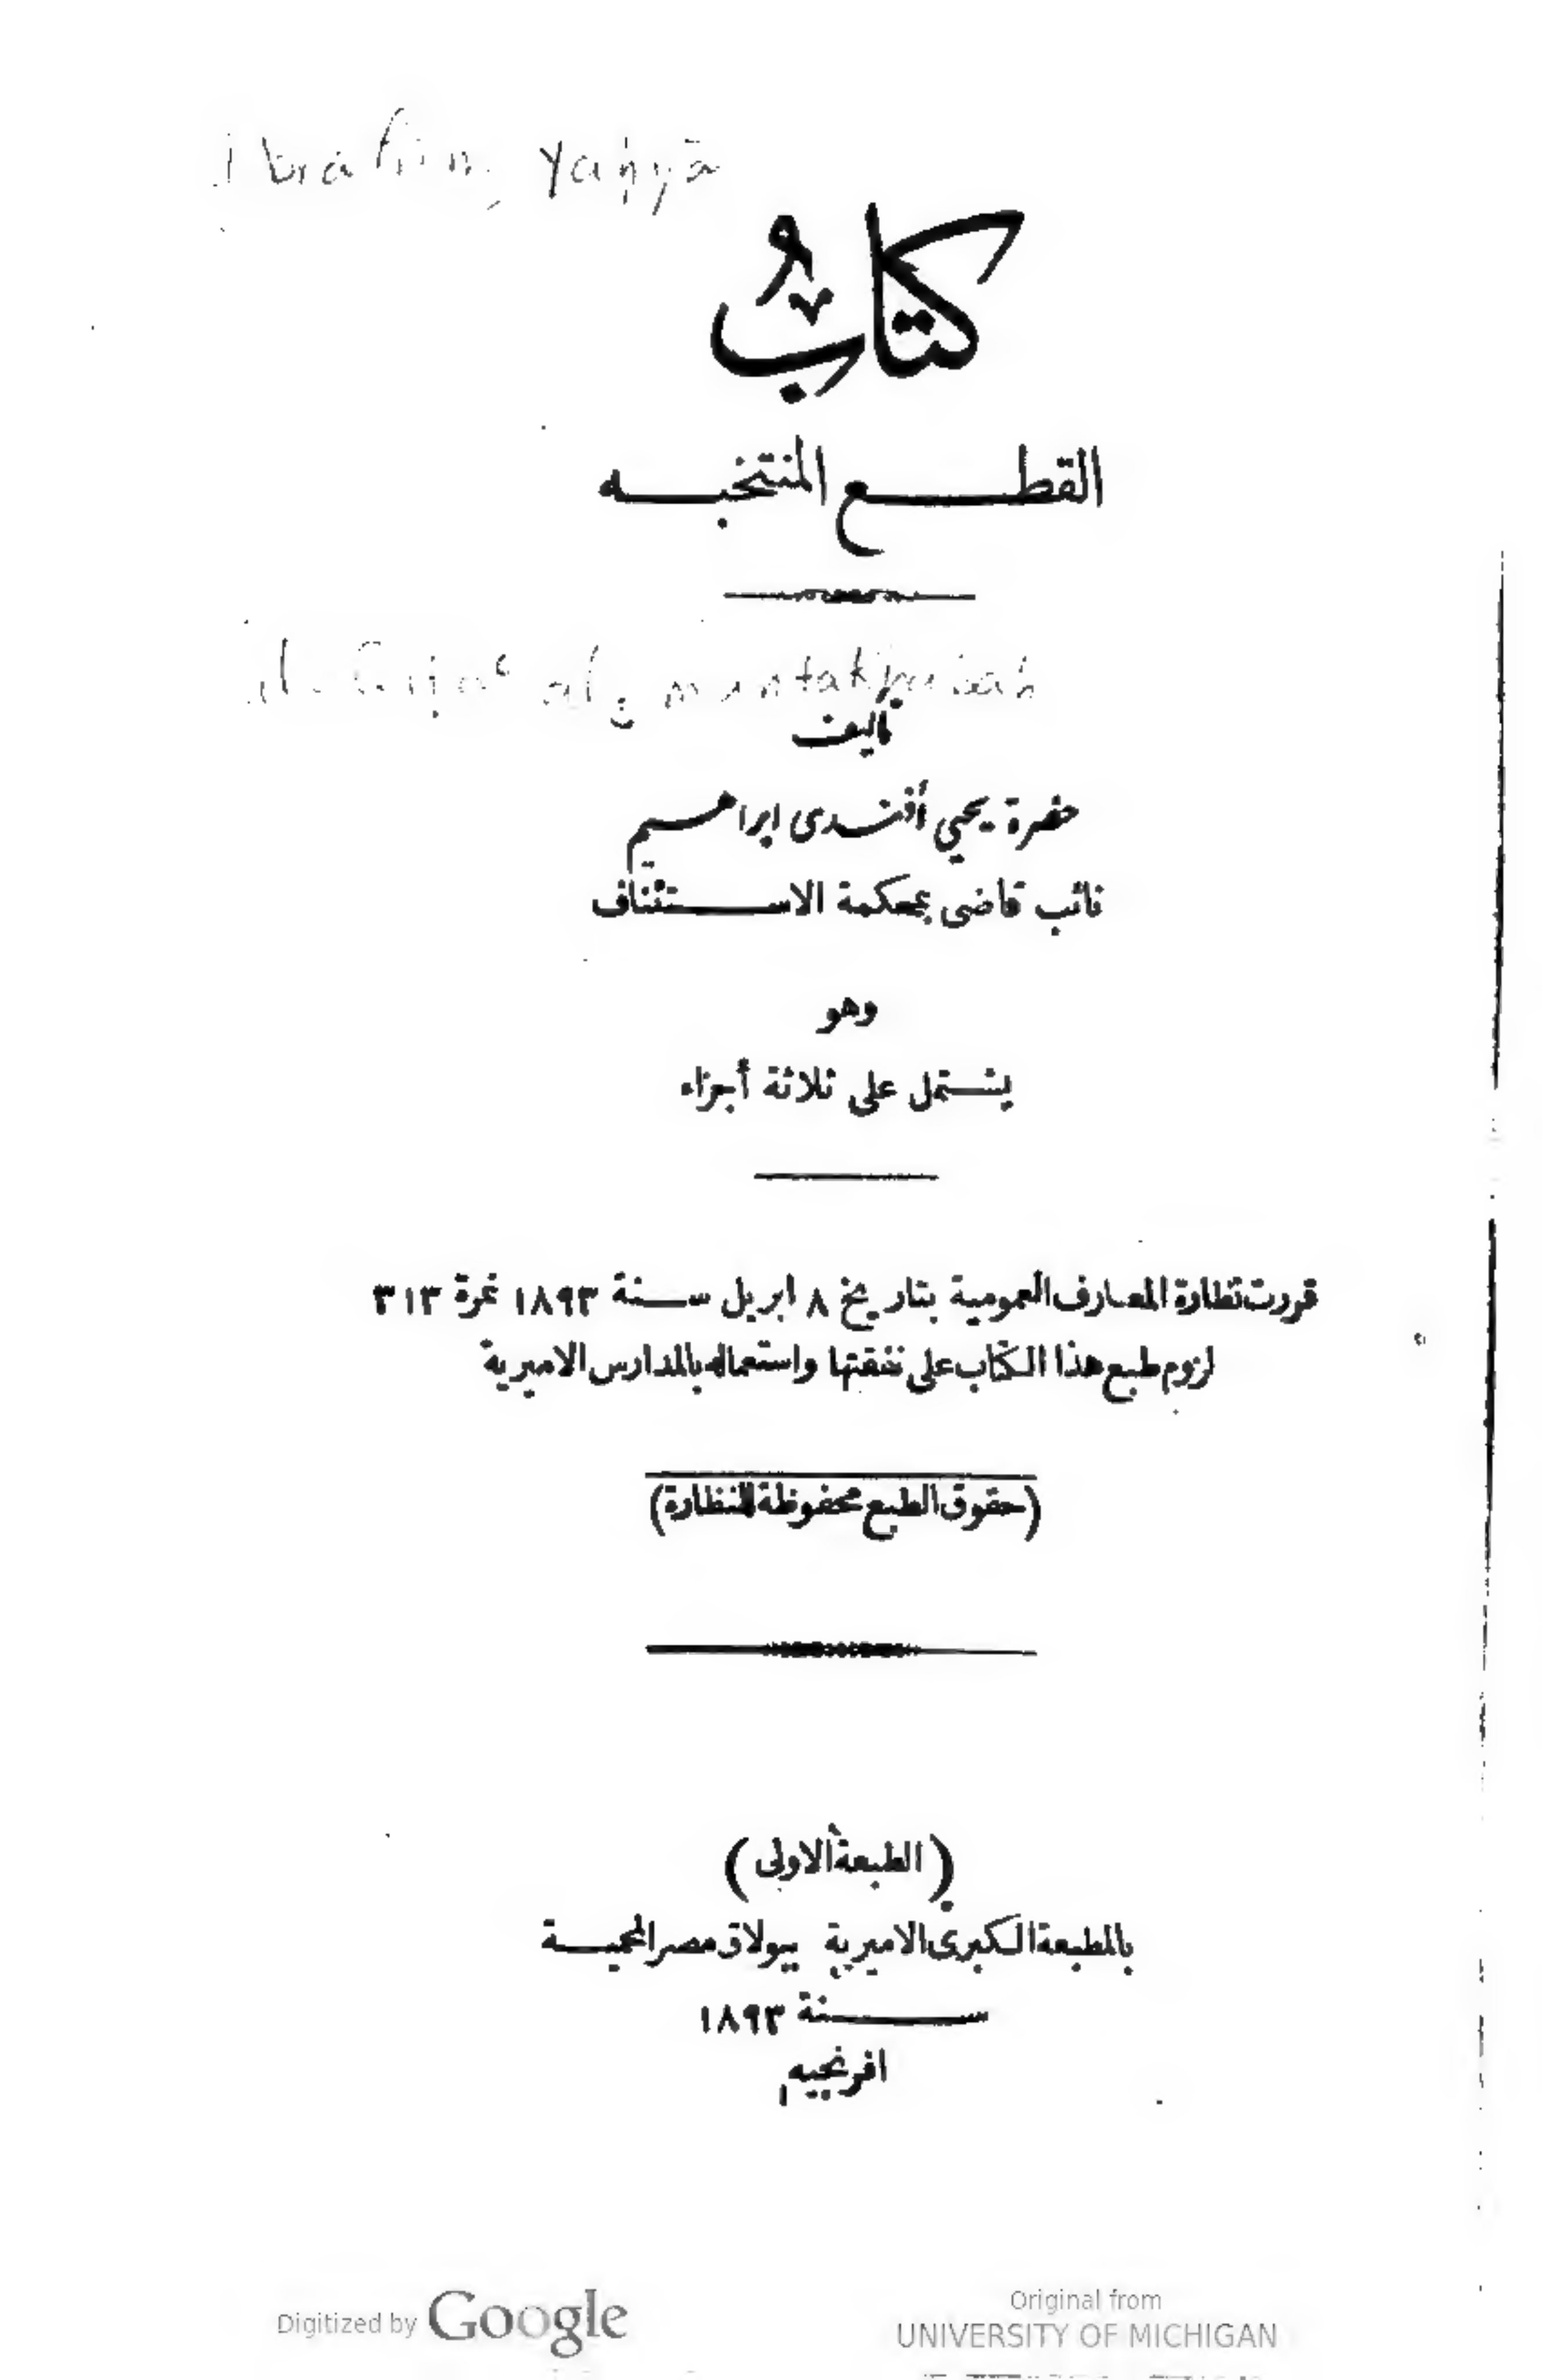 Ibrahim, Yahyā
كتاب
القطع المنتخبه
al-Qiṭaʿ al-muntakhabah
تأليف
حضرة يحيى أفندى ابراهيم
نائب قاضى بمحكمة الاستئناف
وهو
يشتمل على ثلاثة أجزاء
قررت نظارة المعارف العمومية بتاريخ ٨ ابريل سنة ١٨٩٣ نمرة ٣١٣
لزوم طبع هذا الكتاب على نفقتها واستعماله بالمدارس الاميرية
(حقوق الطبع محفوظة للنظارة)
(الطبعة الاولى)
بالمطبعة الكبرى الاميرية ببولاق مصر المحمية
سنة ١٨٩٣
افرنجيه
Digitized by Google
Original from
UNIVERSITY OF MICHIGAN